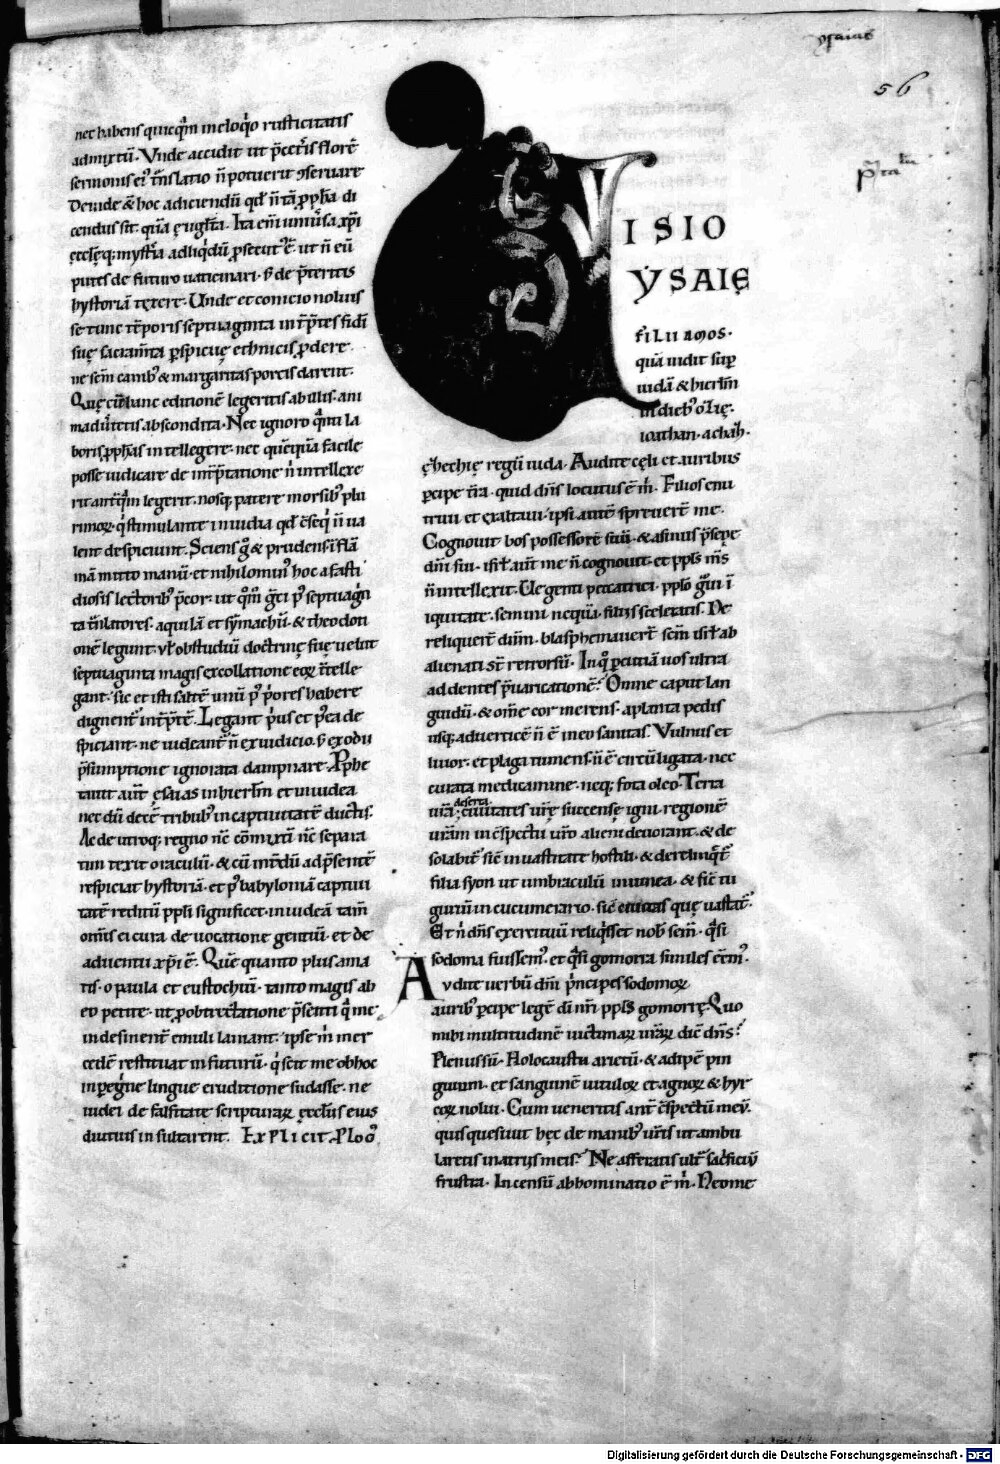 ysaias
56
nec habens quicq̄m ineloq̄o rusticitatis
admixtū. Vnde accidit ut p̄cet̄is florē
sermonis ei᾽ t̄nslatio n̄ potuerit ꝯseruare
Deinde & hoc adiciendū qđ n̄ tā ꝓpħa di
cendus sit. quā ęuḡlta. Ita em̄ uniūsa xp̄i
ęcclęꝗ; myst̄ia adliqͥdū ꝓsecut᾽ ē. ut n̄ eū
putes de futuro uaticinari. ſ; de p̄teritis
hystoriā texere. Unde et conicio noluis
se tunc tēporis septuaginta int̄p̄tes fidei
suę sacram̄ta ꝑspicuę ethnicis ꝓdere
ne sc̄m canib᾽ & margaritas porcis darent.
Quę cū hanc editionē legeritis ab illis. ani
maduͥtetis abscondita. Nec ignoro qͣnti la
boris ꝓphās intellegere. nec quēquā facile
posse iudicare de int̄p̄tatione nͥ intellexe
rit ante q̄m legerit. nosꝗ; patere morsib᾽ plu
rimoꝝ. qͥ stimulante inuidia qđ c̄seqͥ n̄ ua
lent despiciunt. Sciens gͦ & prudens ī flā
mā mitto manū. et nihilomin᾽ hoc a fasti
diosis lectorib᾽ p̄cor. ut qͦm̄ gͤci pꝰ septuagin
ta t̄nslatores. aquilā et sȳmachū. & theodon
onē legunt. uꝉ ob studiū doctͥnę suę uel ut
septuaginta magis ex collatione eoꝝ īntelle
gant. sic et isti saltē unū pꝰ pͥores habere
dignent᾽ int̄p̄tē. Legant pͥus et pꝰea de
spiciant. ne uideant᾽ n̄ ex iudicio. ſ; ex odii
p̄sumptione ignorata dampnare. Pphe
tauit aut̄ ęsaias in hierłm et in iudea
nec dū decē tribub᾽ in captiuitatē ductis.
Ac de utroꝗ; regno nc̄ com̄ixtī nc̄ separa
tim texit oraculū. & cū int̄dū ad p̄sentē
respiciat hystoriā. et pꝰ babyloniā captiui
tatē reditū ppłi significet. in iudeā tam̄
om̄is ei cura de uocatione gentiū. et de
aduentu xp̄i ē. Quē quanto plus ama
tis. o paula et eustochiū. tanto magis ab
eo petite. ut ꝓ obtrectatione p̄senti qͣ me
indesinent̄ emuli laniant. ipse m̄ mer
cedē restituat in futurū. qͥ scit me ob hoc
in peͥgne lingue eruditione sudasse. ne
iudei de falsitate scripturaꝝ ęcclīis eius
diutius insultarent. EXPLICIT PLOGꝰ
VISIO
YSAIĘ
FILII AMOS.
quā uidit sup̄
iudā & hierłm
in dieb᾽ ozię.
ioathan. achaħ.
ęzhechię regū iuda. Audite cęli et auribus
ꝑcipe t̄ra. quid dn̄s locutus ē m̄. Filios enu
triui et exaltaui. ipsi autē spreuer̄t me.
Cognouit bos possessorē suū. & asinus p̄sepe
dn̄i sui. isrł aut̄ me n̄ cognouit. et ppłs m̄s
n̄ intellexit. Ve genti peccatrici. pplo gͣui ī
iquitate. semini nequā. filiis sceleratis. De
reliquer̄t dn̄m. blasphemauer̄t sc̄m isrł ab
alienati st̄ retrorsū. In qͦ ꝑcutiā uos ultra
addentes p̄uaricationē? Omne caput lan
guidū. & om̄e cor merens. a planta pedis
usꝗ; ad uerticē n̄ ē in eo sanitas. Vulnus et
liuor. et plaga tumens. n̄ ē circūligata. nec
curata medicamine. neꝗ; fota oleo. Terra
ur̄a deserta. ciuitates ur̄ę succensę igni. regionē
ur̄am in c̄spectu ur̄o alieni deuorant. & de
solabit᾽ sic̄ in uastitate hostili. & derelinq̄t᾽
filia syon ut umbraculū in uinea. & sic̄ tu
guriū in cucumerario. sic̄ ciuitas quę uastat᾽.
Et nͥ dn̄s exercituū reliqͥsset nob᾽ sem̄. qͣsi
sodoma fuissem᾽. et qͣsi gomorra similes eēm᾽.
Audite uerbū dn̄i pͥncipes sodomoꝝ
aurib᾽ ꝑcipe legē dī nr̄i ppłs gomorrę. Quo
mihi multitudinē uictimaꝝ ur̄aꝝ dic̄ dn̄s?
Plenus sū. Holocaustū arietū. & adipē pin
guium. et sanguinē uituloꝝ et agnoꝝ & hyr
coꝝ nolui. Cum ueneritis ant̄ c̄spectū meū.
quis quesiuit hęc de manib᾽ ur̄is ut ambu
laretis in atriis meis? Ne afferatis ult̄ sac̄ficiū
frustra. Incensū abhominatio ē m̄. Neome
Digitalisierung gefördert durch die Deutsche Forschungsgemeinschaft - DFG